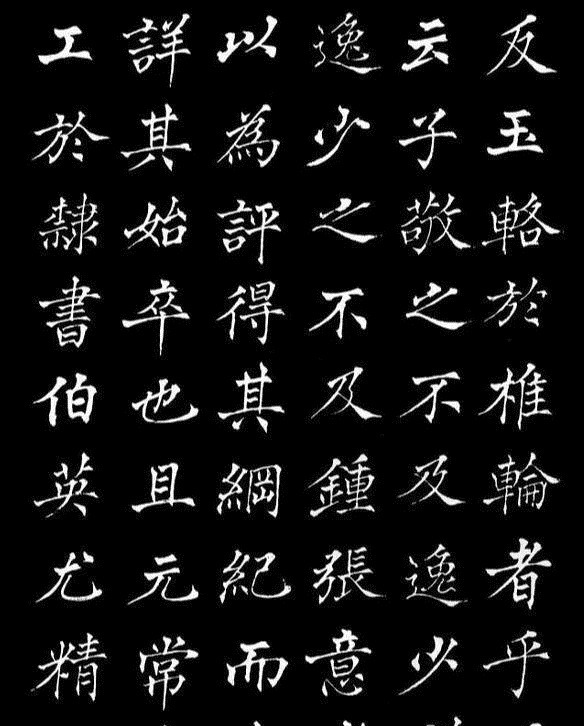 反玉輅於椎輪者乎
云子敬之不及逸少
逸少之不及鍾張意
以為評得其綱紀而
詳其始卒也且元常
工於隸書伯英尤精